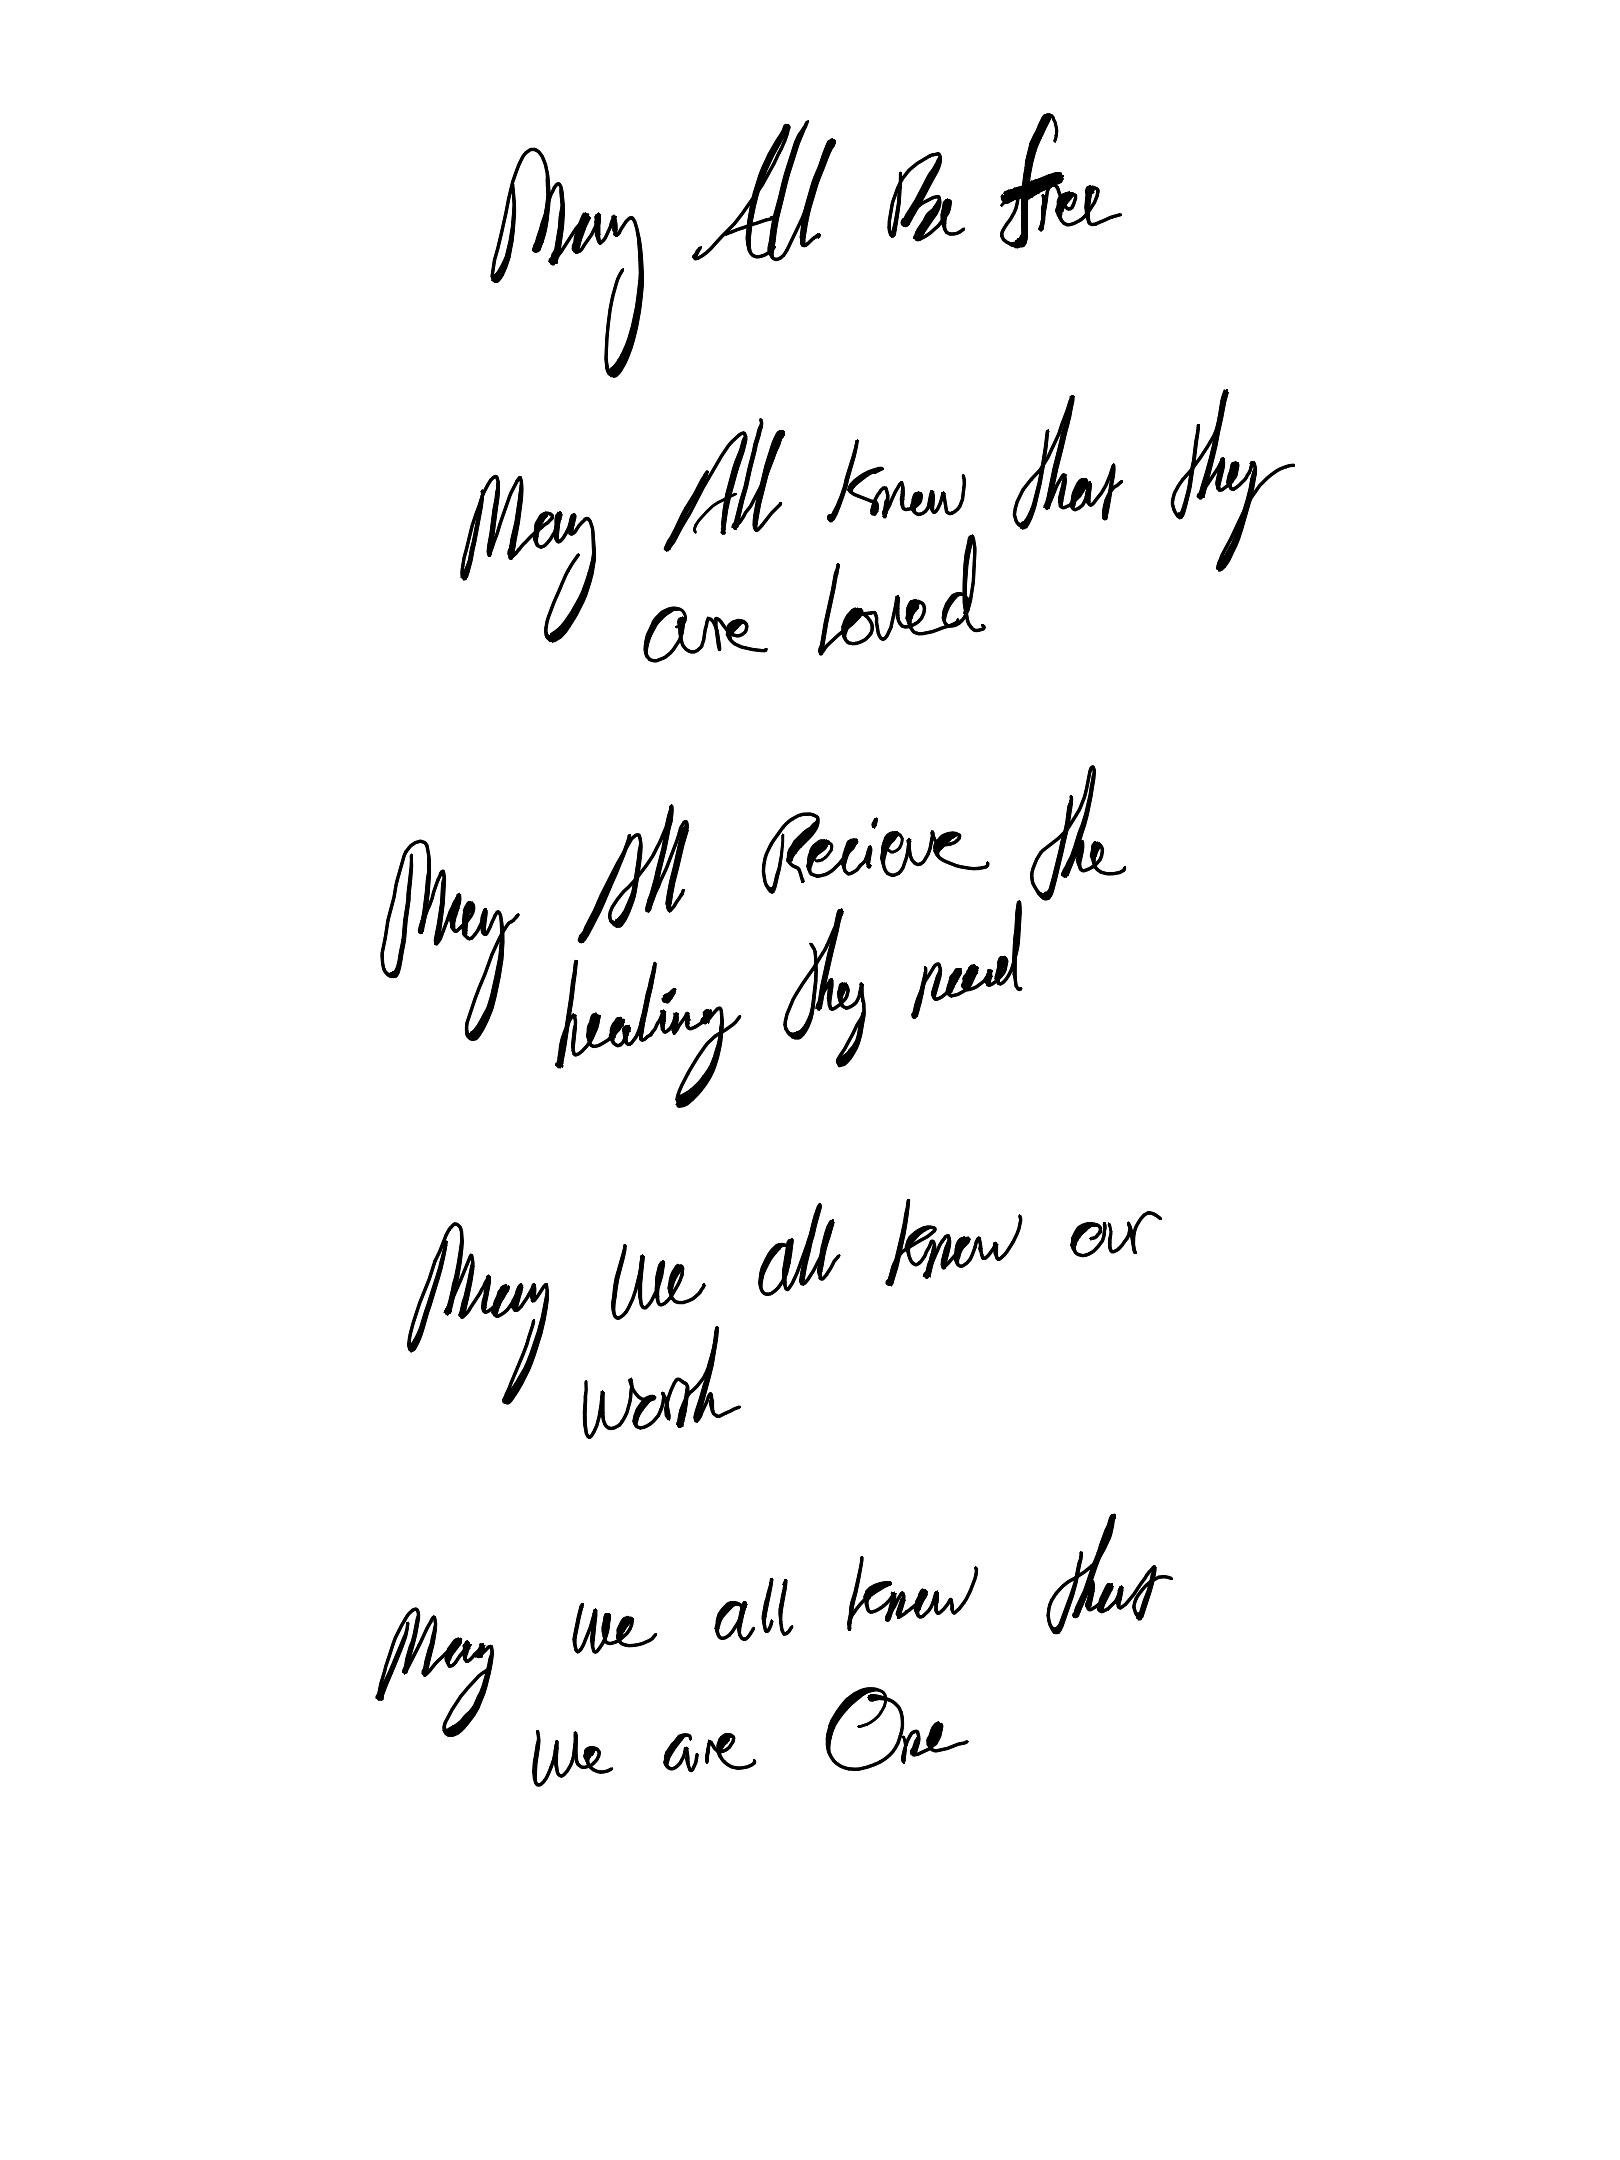 May All Be free
May All know that they
are loved
May All Recieve the
healing they need
May we all know our
worth
May we all know that
we are One